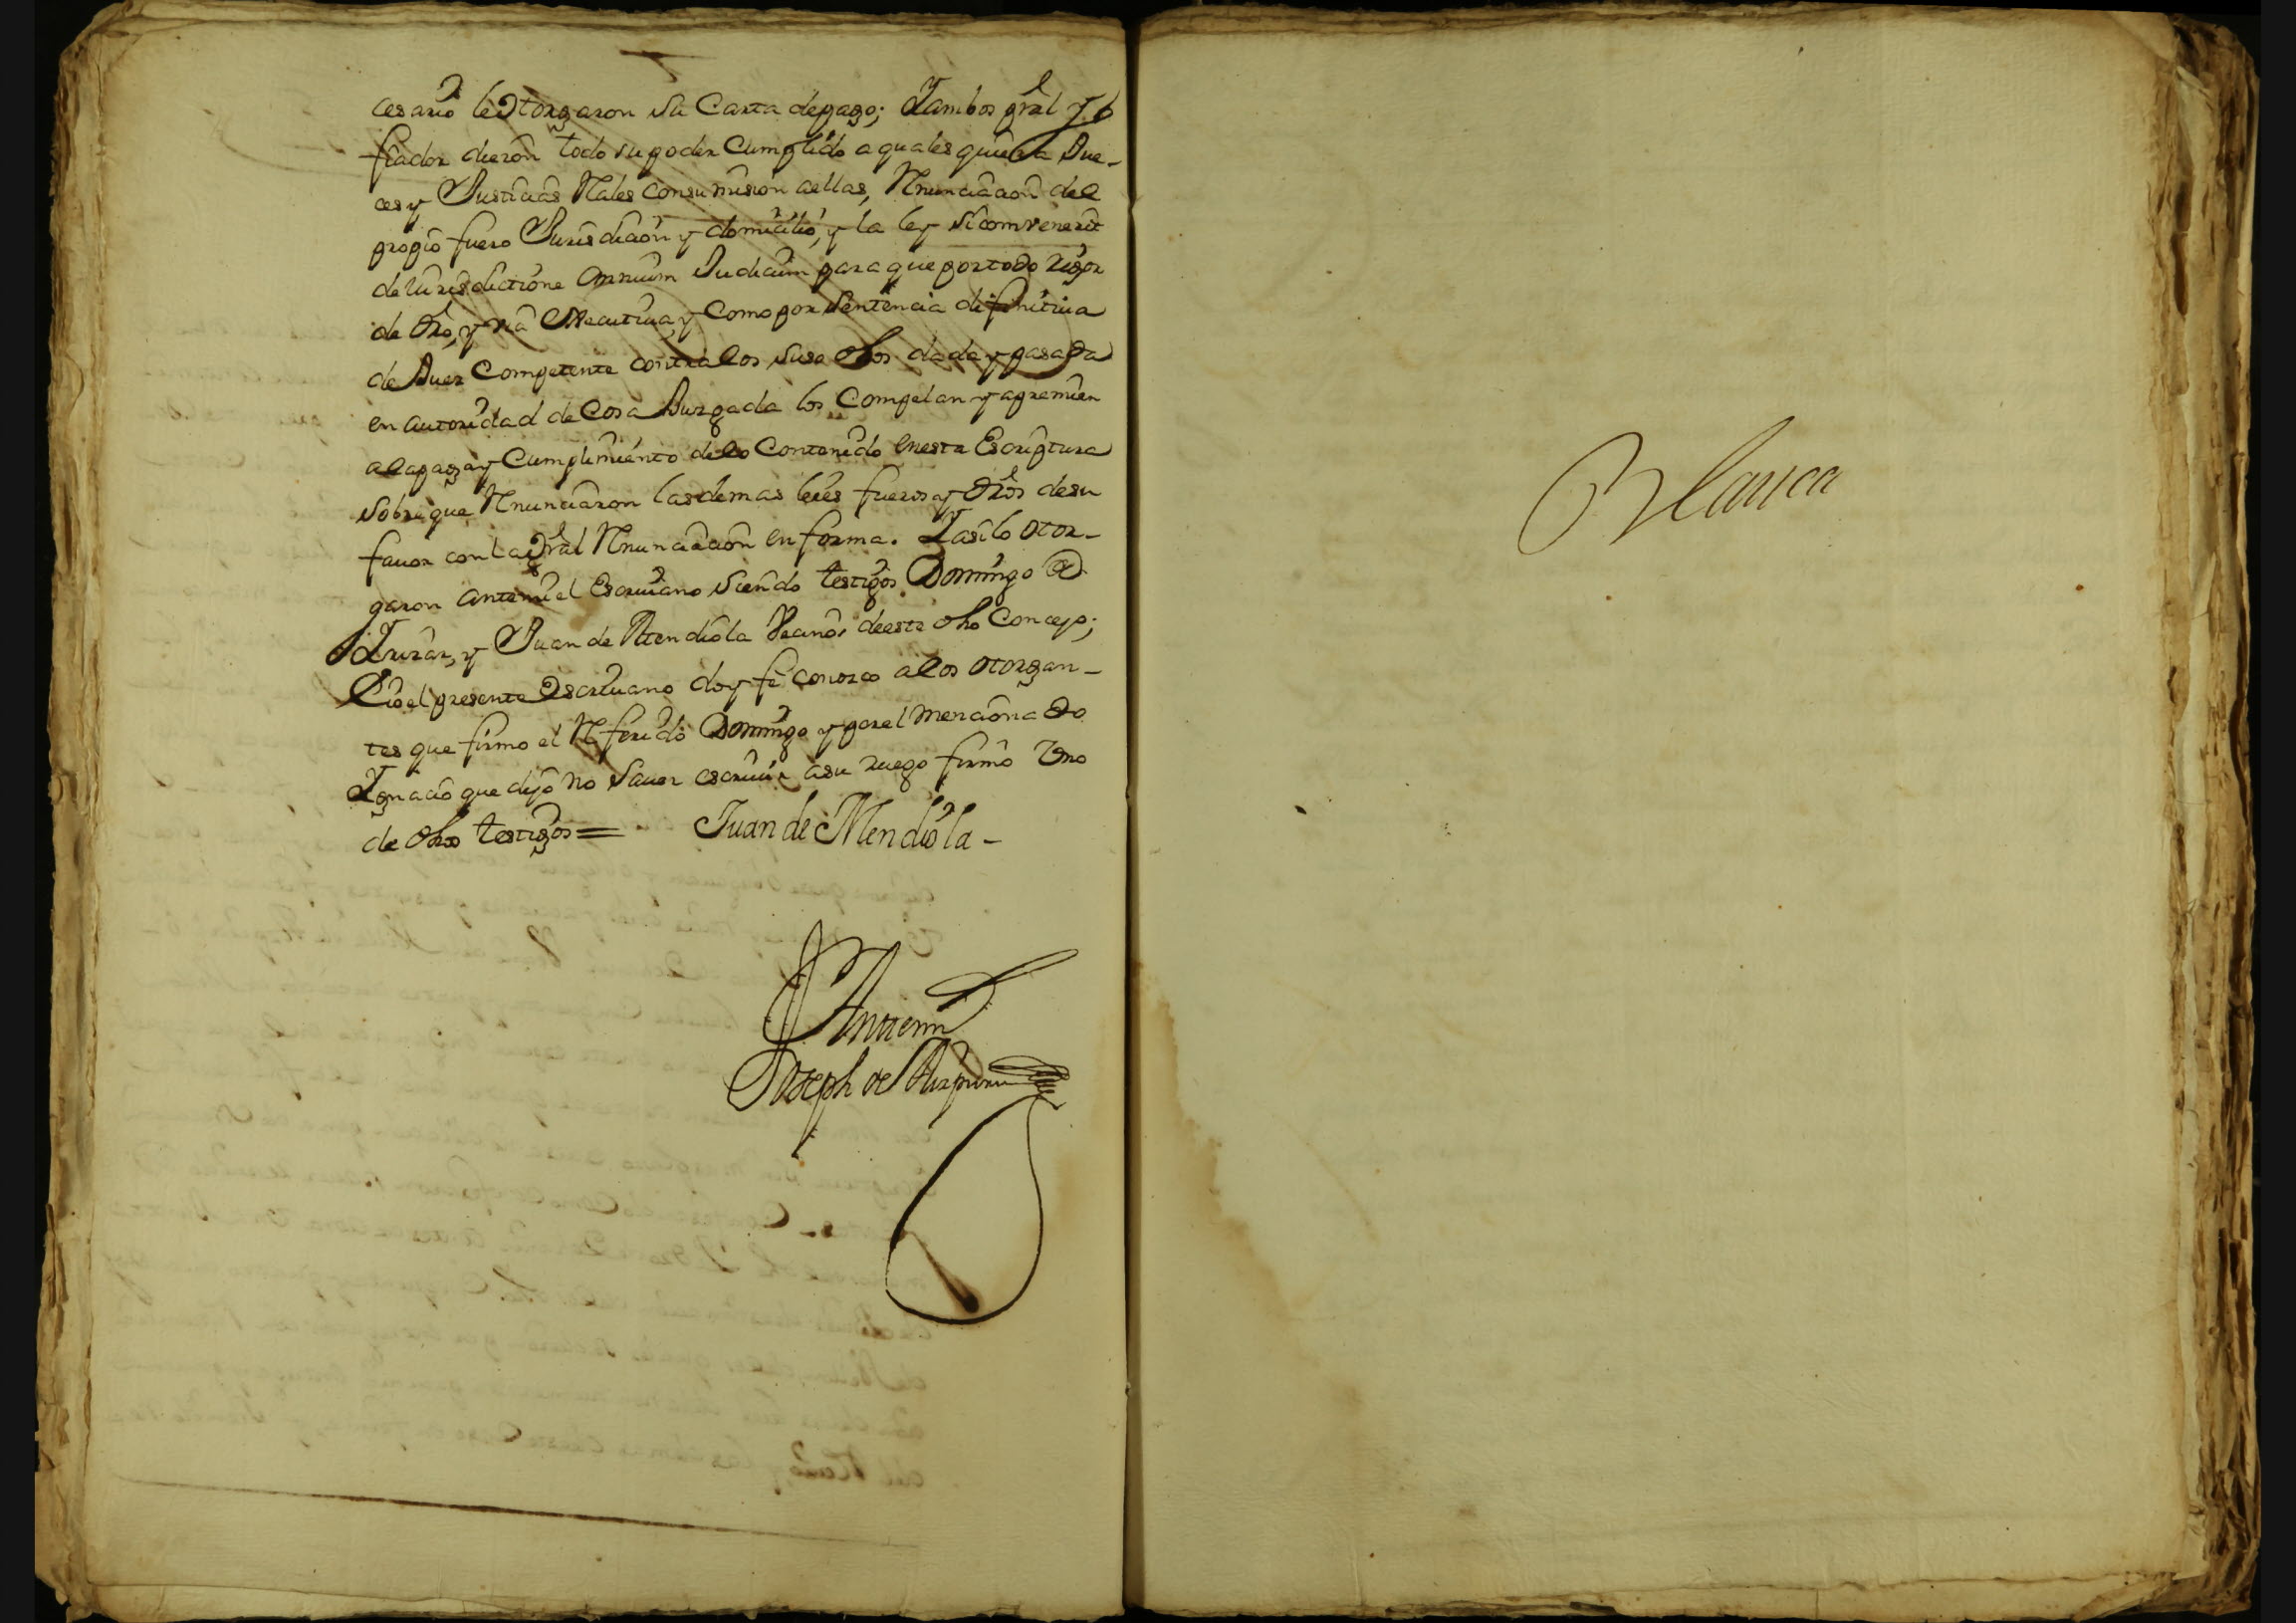 cesario le otorgaron su Carta de pago; Y ambos pral y
fiador dieron todo su poder Cumplido a quales quiera Jue-
ces y Justicias Rales con sumision a ellas, Renunciacion del
propio fuero Jurisdicion y domicilio, y la ley si combenerit
de Jurisdictione omnium Judicum para que por todo rigor
de dro, y via executiva, y como por sentencia difinitiva
de Juez Competente contra los suso dhos dada y pasada
en autoridad de Cosa Juzgada los Compelan y apremien
a la paga y Cumplimiento de lo Contenido en esta Escriptura
sobre que Renunciaron las demas leies fueros y dros de su
favor con la gral Renunciacion en forma. Y asi lo otor-
garon ante mi el Escrivano siendo testigos Domingo de
Yrizar, y Juan de Mendiola Vecinos de este dho Concejo;
E io el presente Escrivano doy fe conozco a los otorgan-
tes que firmo el Referido Domingo y por el mencionado
Ygnacio que dijo no saver escrivir a su ruego firmó Uno
de dhos testigos = Juan de Mendiola -
Ante mi
Joseph de Aizpuru
Blanca